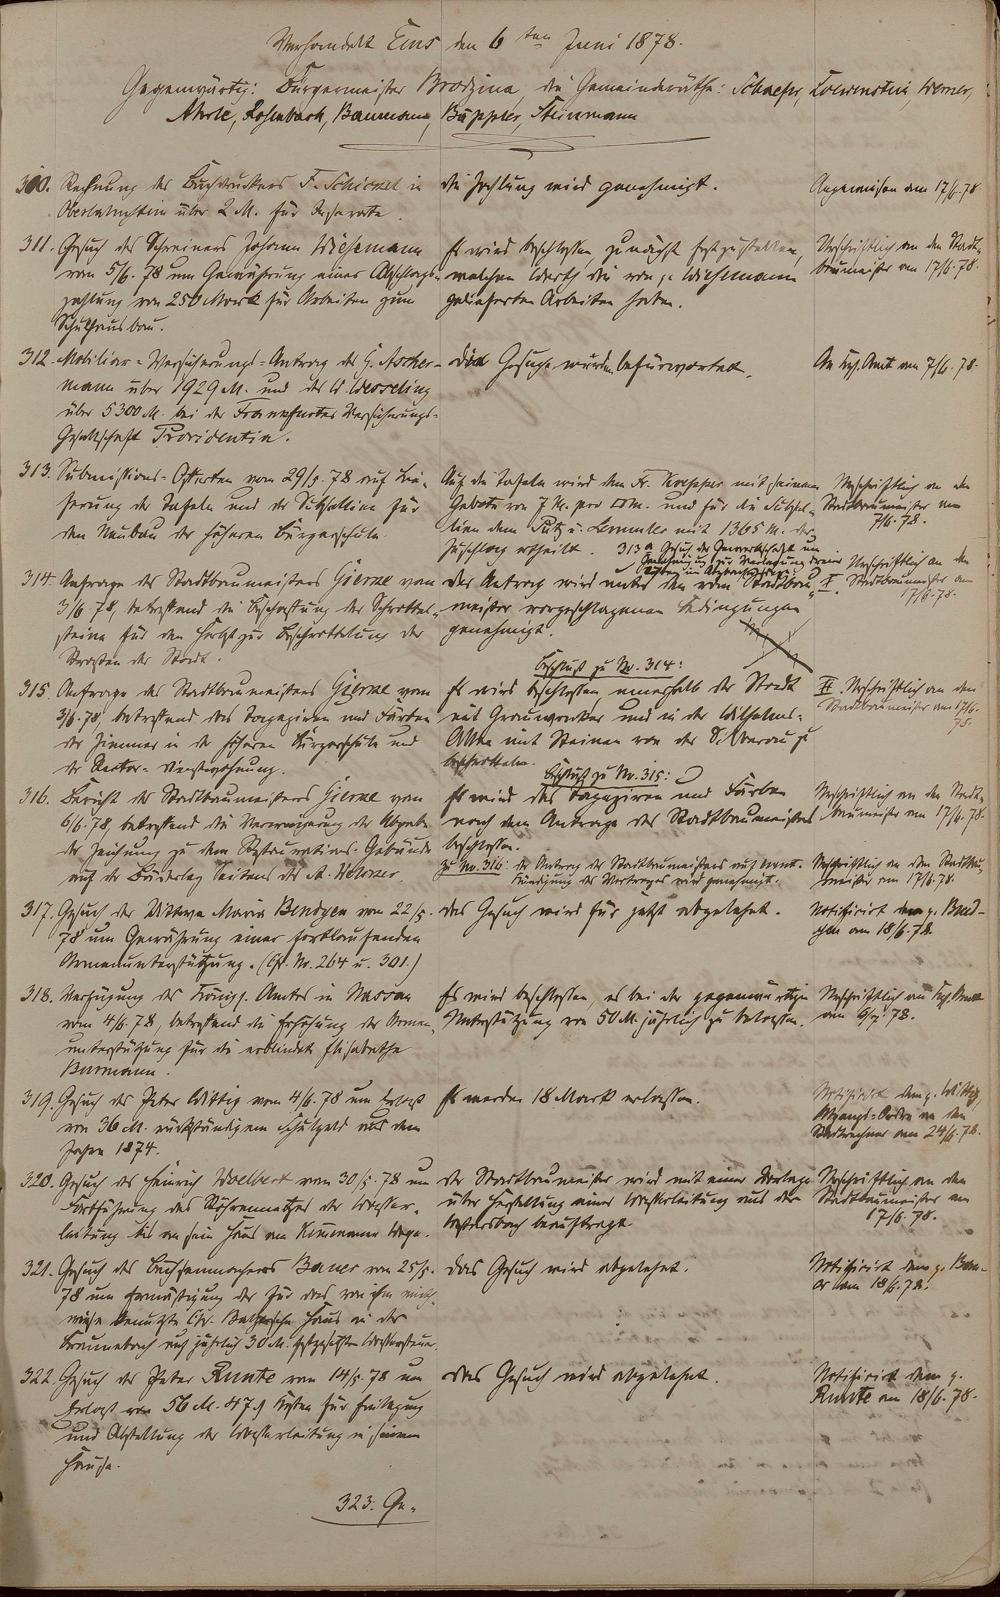 Verhandelt Ems den 6ten Juni 1878.
Gegenwärtig: Bürgermeister Brodzina, die Gemeinderäthe: Schaefer, Loewenstein, Werner,
Rosenbach, Baumann, Büppler, Steinmann
310. Rechnung des Buchdruckers F. Schickel in
Oberlahnstein über 2 M. für Inserate.
die Zahlung wird genehmigt.
Angewiesen am 17/6.78
311. Gesuch des Schreiners Johann Wiesemann
vom 5/6.78 um Gewährung einer Abschlags-
zahlung von 250 Mark für Arbeiten zum
Schulhausbau.
Es wird beschlossen, zunächst festzustellen,
welchen Werth die von p. Wiesemann
gelieferten Arbeiten haben.
Urschriftlich an den Stadt-
baumeister am 17/6.78.
312. Mobiliar-Versicherungs-Antrag des G. Ascher-
mann über 1929 M. und des W. Wesseling
über 5300 M. bei der Frankfurter Versicherungs-
Gesellschaft Providentia.
die Gesuche wurden befürwortet.
An Kgl. Amt am 7/6.78.
313. Submissions-Offerten vom 29/5.78 auf Lie-
ferung der Tafeln und der Subsellien für
den Neubau der höheren Bürgerschule.
Auf die Tafeln wird dem Fr. Kaepper mit seinem
Gebote von 7 M. pro □m. und für die Subsel-
lien dem Putz u. Lemmler mit 1365 M. der
Zuschlag ertheilt.
Urschriftlich an den
Stadtbaumeister am
7/6.78.
313a Gesuch der Gewerkschaft um
314. Anfrage des Stadtbaumeisters Gierne vom
3/6.78, betreffend die Beschaffung der Schottel-
steine für den Herbst zu Beschottelung der
Straßen der Stadt.
der Antrag wird unter den vom Stadtbau-
meister vorgeschlagenen Bedingungen
genehmigt.
I. Urschriftlich an den
Stadtbaumeister am
17/6.78.
Beschluß zu No. 314:
315. Anfrage des Stadtbaumeisters Gierne vom
3/6.78, betreffend das Tapeziren und Färben
der Zimmer in der höheren Bürgerschule und
der Rector-Dienstwohnung.
Es wird beschlossen innerhalb der Stadt
mit Grauwacke und in der Wilhelms-
Allee mit Steinen von der Silberau zu
beschotteln.
II. Urschriftlich an den
Stadtbaumeister am 17/6.
78.
Beschluß zu No. 315:
316. Bericht des Stadtbaumeisters Gierne vom
6/6.78, betreffend die Verweigerung der Abgabe
der Zeichnung zu dem Restaurations-Gebäude
auf der Bäderley Seitens des A. Werner
Es wird das Tapeziren und Färben
nach dem Antrage des Stadtbaumeisters
beschlossen.
Urschriftlich an den Stadt-
baumeister am 17/6.78.
Zu No. 316: der Antrag des Stadtbaumeisters auf event.
Kündigung des Vertrages wird genehmigt.
Urschriftlich an den Stadtbau-
meister am 17/6.78.
317. Gesuch der Wittwe Maria Bendgen vom 22/5.
78 um Gewährung einer fortlaufenden
Armenunterstützung. (Cfr. No. 264 u. 301.)
das Gesuch wird für jetzt abgelehnt.
Notificirt dem p. Bend-
gen am 18/6.78.
318. Verfügung des Königl. Amtes in Nassau
vom 4/6.78, betreffend die Erhöhung der Armen-
unterstützung für die erblindete Elisabetha
Burmann.
Es wird beschlossen, es bei der gegenwärtigen
Unterstützung von 50 M. jährlich zu belassen.
Urschriftlich an Kgl. Amt
am 9/7.78.
319. Gesuch des Peter Wittig vom 4/6.78 um Erlaß
von 36 M. rückständigem Schulgeld aus dem
Jahre 1874.
Es werden 18 Mark erlassen.
Notificirt dem p. Wittig,
Abgangs-Ordre an den
Stadtrechner am 24/6.78.
320. Gesuch des Heinrich Woelbert vom 30/5.78 um
Fortführung des Röhrennetzes der Wasser-
leitung bis an sein Haus am Kemmenauer Wege.
der Stadtbaumeister wird mit einer Vorlage
über Herstellung einer Wasserleitung aus der
beauftragt
Urschriftlich an den
Stadtbaumeister am
17/6.78.
321. Gesuch des Büchsenmachers Bauer vom 25/5.
78 um Ermäßigung der für das von ihm mieth-
weise benutzte Chr. Balzersche Haus in der
Braunebach auf jährlich 30 M. festgesetzten Wassersteuer.
das Gesuch wird abgelehnt.
Notificirt dem p. Bau-
er am 18/6.78.
322. Gesuch des Peter Runte vom 14/5.78 um
Erlaß von 56 M. 47 ₰ Kosten für Freilegung
und Abstellung der Wasserleitung in seinem
Hause.
das Gesuch wird abgelehnt.
Notificirt dem p.
Runte am 18/6.78.
323. Ge-